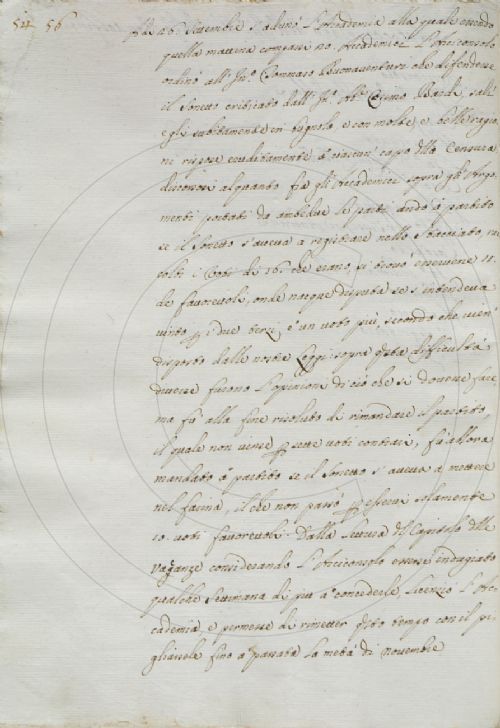 54 56
A dì 26. Settembre s'adunò l'Accademia alla quale essendo
quella mattina comparsi no. Accademici l'Arciconsolo
ordinò all' Ill.º Tommaso Buonaventuri che difendesse
il sonetto criticato dall' Ill. Ab.e Cosimo Bardi, salì
egli subitamente in bugnola, e con molte, e belle ragio
ni rispose eruditamente a ciascun capo della Censura
discorsosi alquanto fra gli Accademici sopra gl'Argo
menti portati da ambedue le parti andò a partito
se il sonetto s'aveva a registrare nello Stacciato, rac
colti i Voti di 16. che erano, si trovò esservene 11.
de favorevoli, onde nacque disputa se s'intendeva
vinto p i due terzi, e un voto più, secondo che vien
disposto dalle nostre Leggi: sopra questa difficultà
diverse furono l'opinioni di ciò che si dovesse fare
ma fù alla fine risoluto di rimandare il partito,
il quale non vinse p sette voti contrari, fù allora
mandato a partito se il sonetto s'aveva a mettere
nel farina, il che non passò p esservi solamente
10. voti favorevoli. Dalla lettura del Capitolo delle
Vaganze considerando l'Arciconsolo essersi indugiato
qualche settimana di più a concederle, licenziò l'Ac
cademia e permesse di rimetter questo tempo con il pi
gliarsele fino a passata la metà di novembre